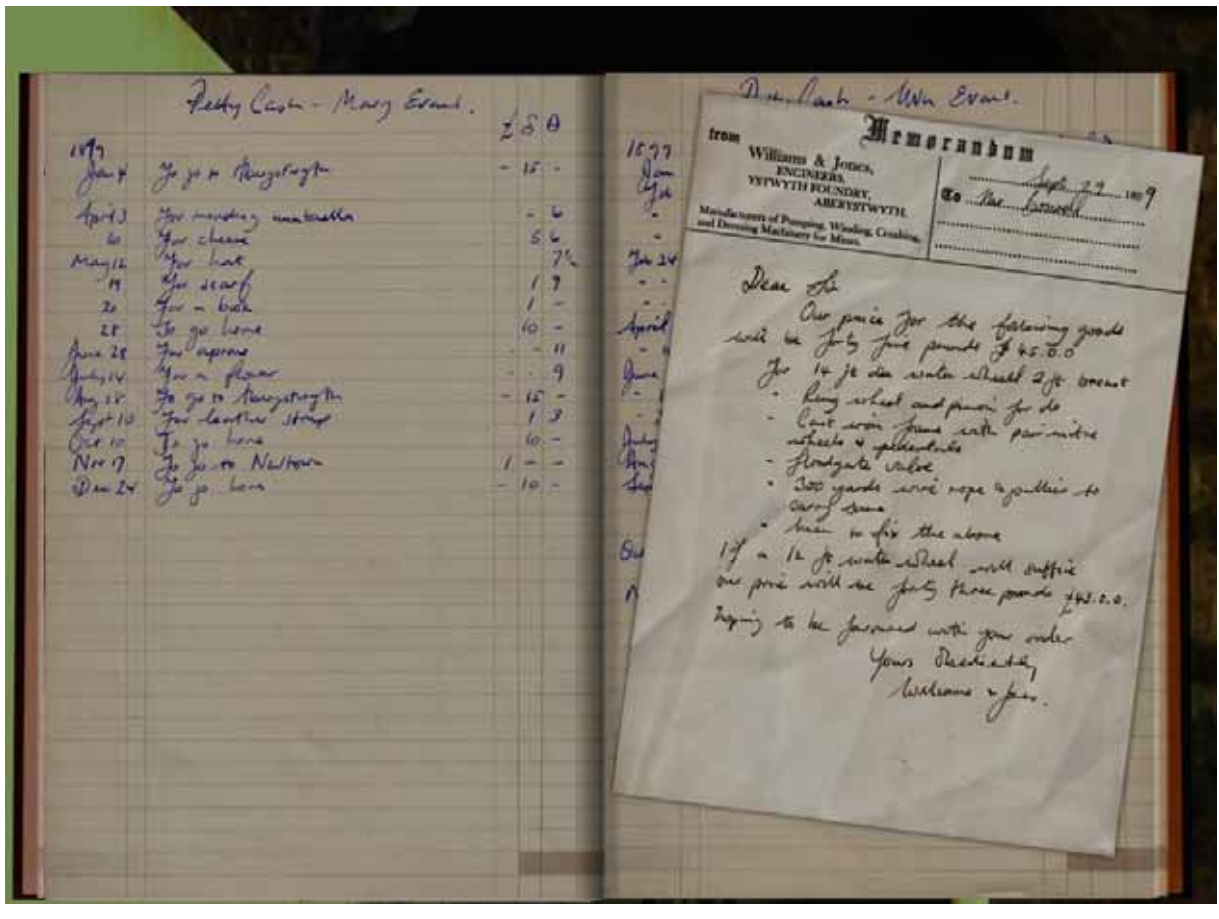 Petty Cash - Mary Evans.
£ S D
1899
Jan 4 To go to - 15 -
April 3 For mending umbrella - 6
6 For cheese 5 6
May 12 For hat 7½
19 For scarf 1 9
20 For a book 1 -
28 To go home 10 -
June 28 For aprons - - 11
July 14 For a flower - - 9
Aug 18 To go to - 15 -
Sept 10 For leather strap 1 3
Oct 10 To go home 10 -
Nov 17 To go to Newtown 1 - -
Dec 24 To go home - 10 -
Petty Cash - Evans.
1899
Jan
Feb
Feb 24
April
June
Memorandum
from
Williams & Jones,
ENGINEERS,
YSTWYTH FOUNDRY,
ABERYSTWYTH.
Manufacturers of Pumping, Winding, Crushing,
and Dressing Machinery for Mines.
Sept 29 1899
To
Dear Sir
Our price for the following goods
will be forty five pounds £45.0.0
For 14 ft dia water wheel 2 ft breast
- Ring wheel and pinion for do
- Cast iron frame with pair mitre
wheels & pedestals
- floodgate valve
- 300 yards wire rope & pullies to
carry same
- to fix the above
If a 12 ft water wheel will suffice
our price will be forty three pounds £43.0.0.
Hoping to be favoured with your order
Yours Obediently
Williams & Jones.